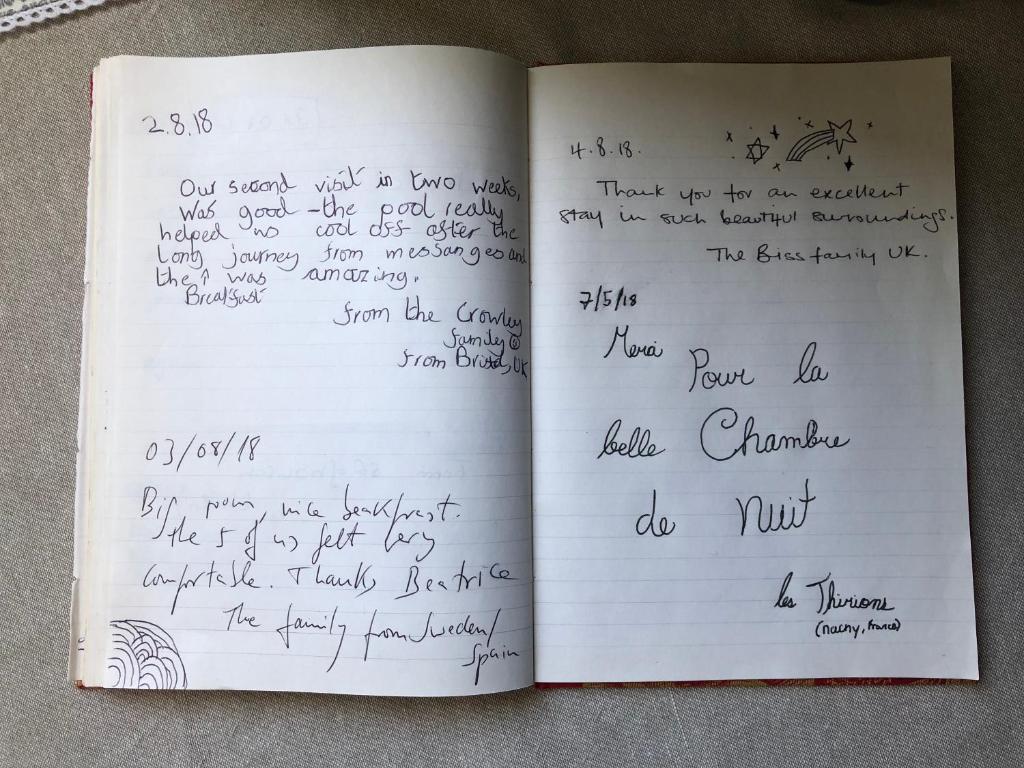 2.8.18
Our second visit in two weeks,
was good - the pool really
helped us cool off after the
long journey from messanges and
the ^ was amazing.
Breakfast
from the Crowley
family
from Bristol, UK
03/08/18
Big room, nice beakfrast.
the 5 of us felt very
comfortable. Thanks Beatrice
The family from Sweden/
Spain
4.8.18.
Thank you for an excellent
stay in such beautiful surroundings.
The Biss family UK.
7/5/18
Merci
Pour la
belle Chambre
de Nuit
les Thirions
(nacny, France)